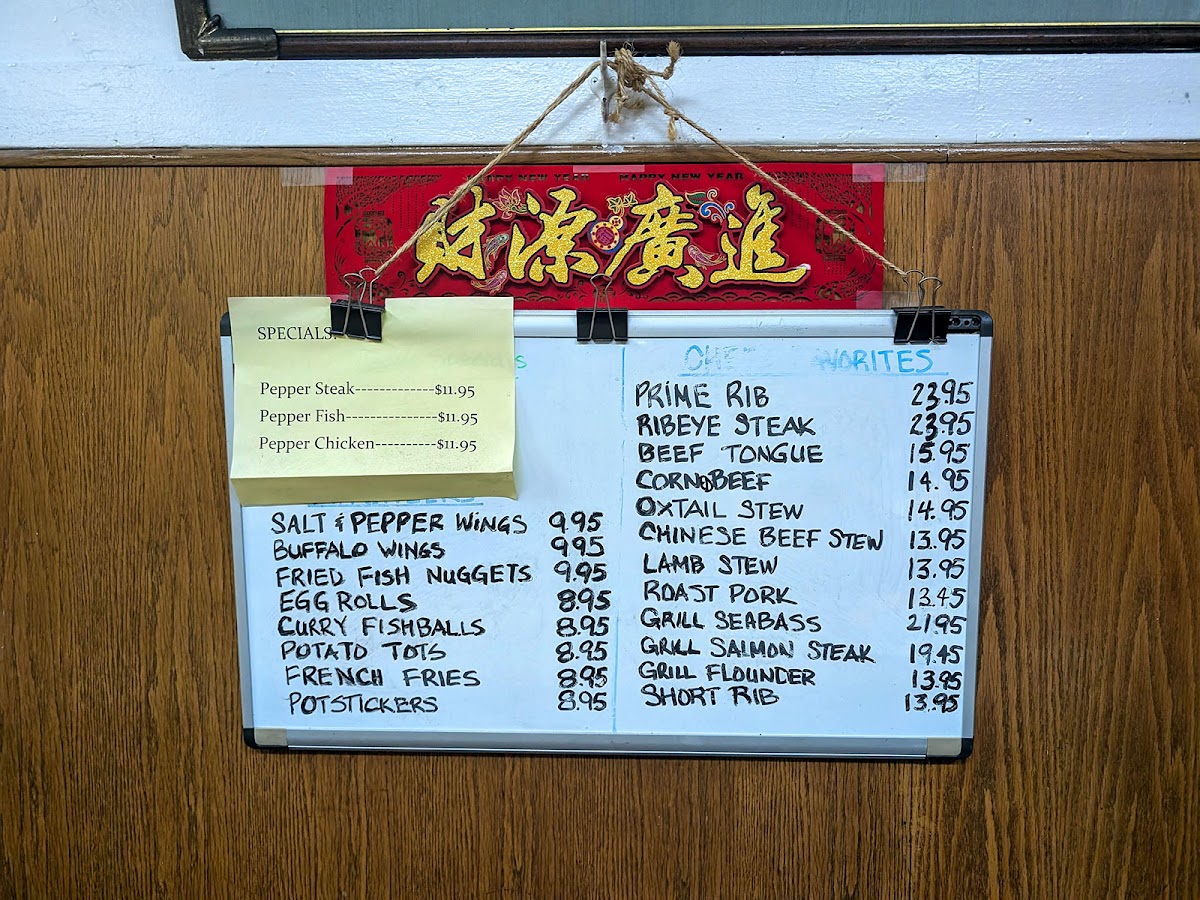 HAPPY NEW YEAR HAPPY NEW YEAR
財源廣進
SPECIALS:
Pepper Steak------------$11.95
Pepper Fish--------------$11.95
Pepper Chicken----------$11.95
SALT & PEPPER WINGS 9.95
BUFFALO WINGS 9.95
FRIED FISH NUGGETS 9.95
EGG ROLLS 8.95
CURRY FISHBALLS 8.95
POTATO TOTS 8.95
FRENCH FRIES 8.95
POTSTICKERS 8.95
PRIME RIB 23.95
RIBEYE STEAK 23.95
BEEF TONGUE 15.95
CORNED BEEF 14.95
OXTAIL STEW 14.95
CHINESE BEEF STEW 13.95
LAMB STEW 13.95
ROAST PORK 13.45
GRILL SEABASS 21.95
GRILL SALMON STEAK 19.45
GRILL FLOUNDER 13.95
SHORT RIB 13.95